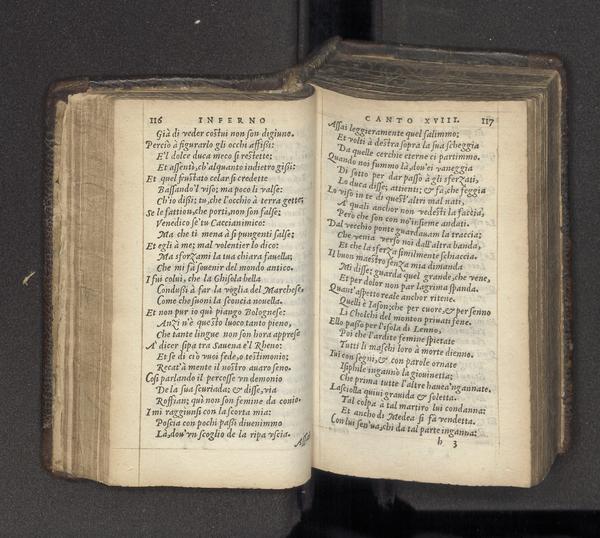 116 INFERNO
Già di veder costui non son digiuno.
Perciò à figurarlo gli occhi affissi:
E'l dolce duca meco si restette:
Et assentì, ch'alquanto indietro gissi:
Et quel frustato celar si credette
Bassando'l viso; ma poco li valse:
Ch'io dissi; tu, che l'occhio à terra gette;
Se le fattion, che porti, non son false;
Venedico se' tu Caccianimico:
Ma che ti mena à sì pungenti salse;
Et egli à me; mal volentier lo dico:
Ma sforzami la tua chiara favella;
Che mi fà sovenir del mondo antico.
I fui colui, che la Ghisola bella
Condussi à far la voglia del Marchese,
Come che suoni la sconcia novella.
Et non pur io quì piango Bolognese:
Anzi n'è questo luoco tanto pieno,
Che tante lingue non son hora apprese
A' dicer sipa tra Savena e'l Rheno:
Et se di ciò vuoi fede, o testimonio;
Recat'à mente il nostro avaro seno.
Così parlando il percosse vn demonio
De la sua scuriada; & disse; via
Roffian; quì non son femine da conio.
I mi raggiunsi con la scorta mia:
Poscia con pochi passi divenimmo
Là, dov'vn scoglio de la ripa vscia.
Assai
CANTO XVIII. 117
Assai leggieramente quel salimmo:
Et volti à destra sopra la sua scheggia
Da quelle cerchie eterne ci partimmo.
Quando noi fummo là, dov'ei vaneggia
Di sotto per dar passo à gli sferzati,
Lo duca disse; attienti; & fà, che feggia
Lo viso in te di quest'altri mal nati,
A' quali anchor non vedesti la faccia,
Però che son con noi'nsieme andati.
Dal vecchio ponte guardavam la traccia;
Che venia verso noi dall'altra banda,
Et che la sferza similmente schiaccia.
Il buon maestro senza mia dimanda
Mi disse; guarda quel grande, che vene,
Et per dolor non par lagrima spanda.
Quant'aspetto reale anchor ritene.
Quelli è Iason; che per cuore, & per senno
Li Cholchi del monton privati fene.
Ello passò per l'isola di Lenno,
Poi che l'ardite femine spietate
Tutti li maschi loro à morte dienno.
Ivi con segni, & con parole ornate
Isiphile ingannò la giovinetta;
Che prima tutte l'altre havea'ngannate.
Lasciolla quivi gravida & soletta.
Tal colpa à tal martiro lui condanna:
Et ancho di Medea si fà vendetta.
Con lui sen'va, chi da tal parte inganna:
h 3